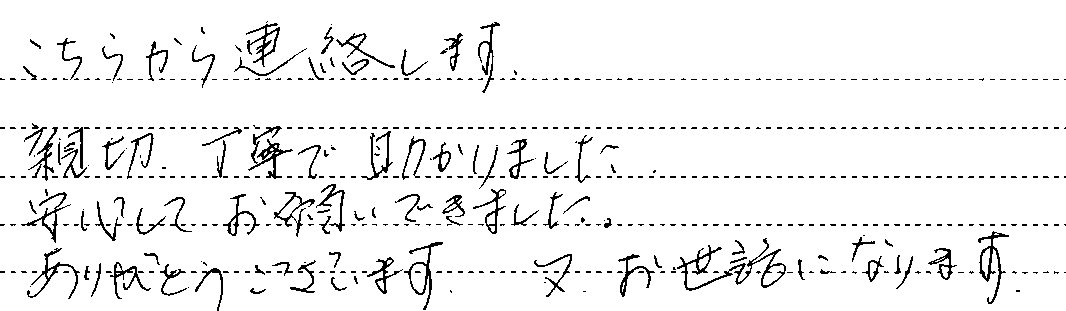 こちらから連絡します.
親切.丁寧で助かりました.
安心してお願いできました。
ありがとうございます. 又.お世話になります.